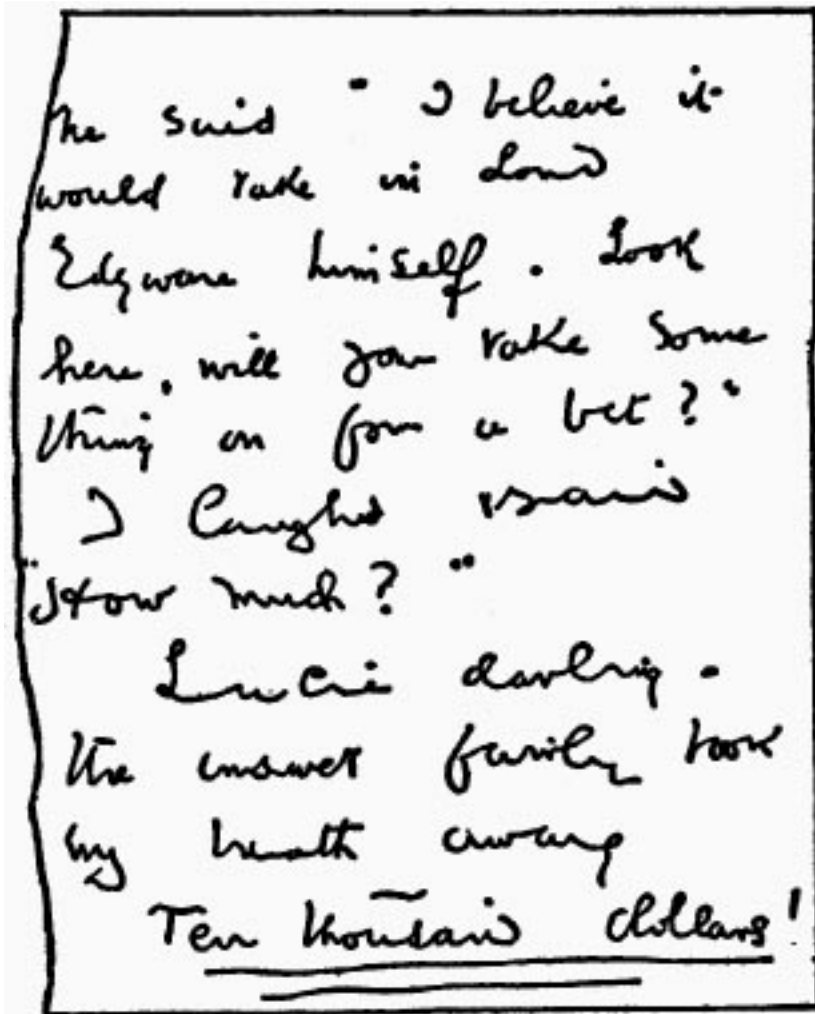 he said " I believe it
would take in Lord
Edgware himself. Look
here, will you take some
thing on for a bet?"
I laughed & said
"How much?"
Lucie darling -
the answer fairly took
my breath away
Ten thousand dollars!